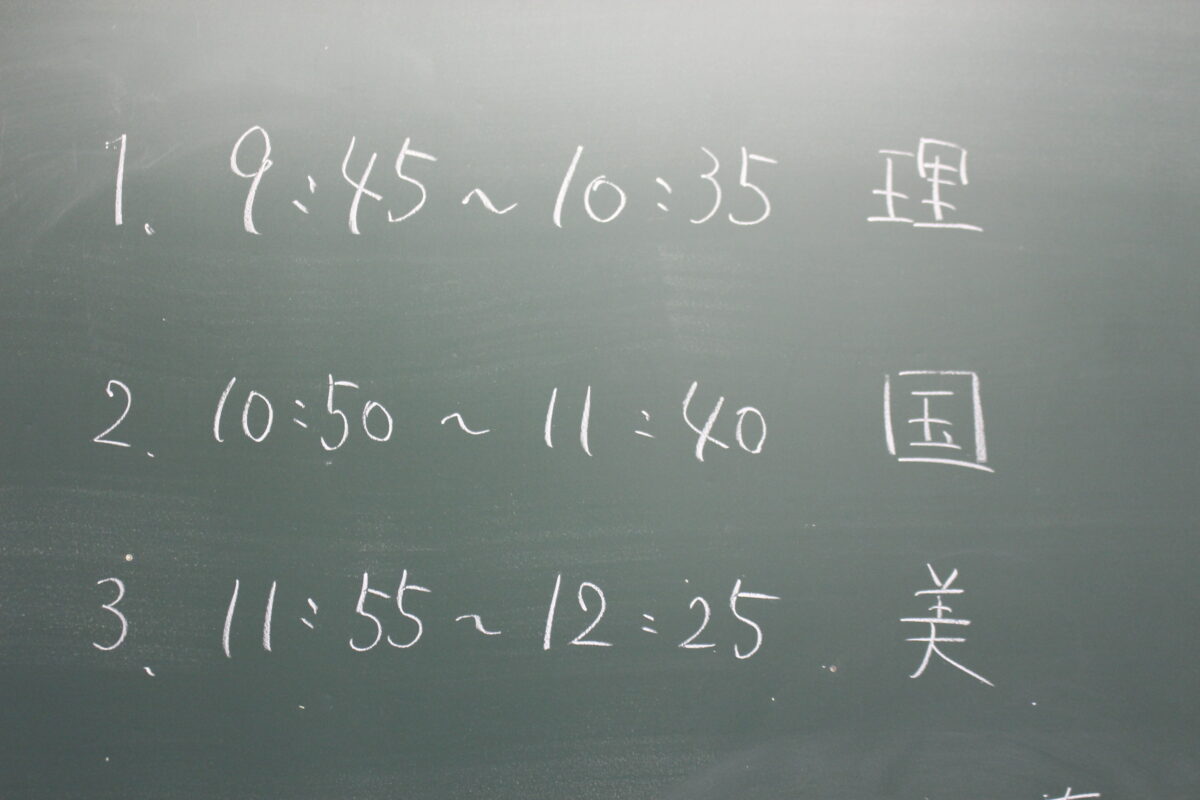 1、 9:45~10:35 理
2、 10:50~11:40 国
3、 11:55~12:25 美